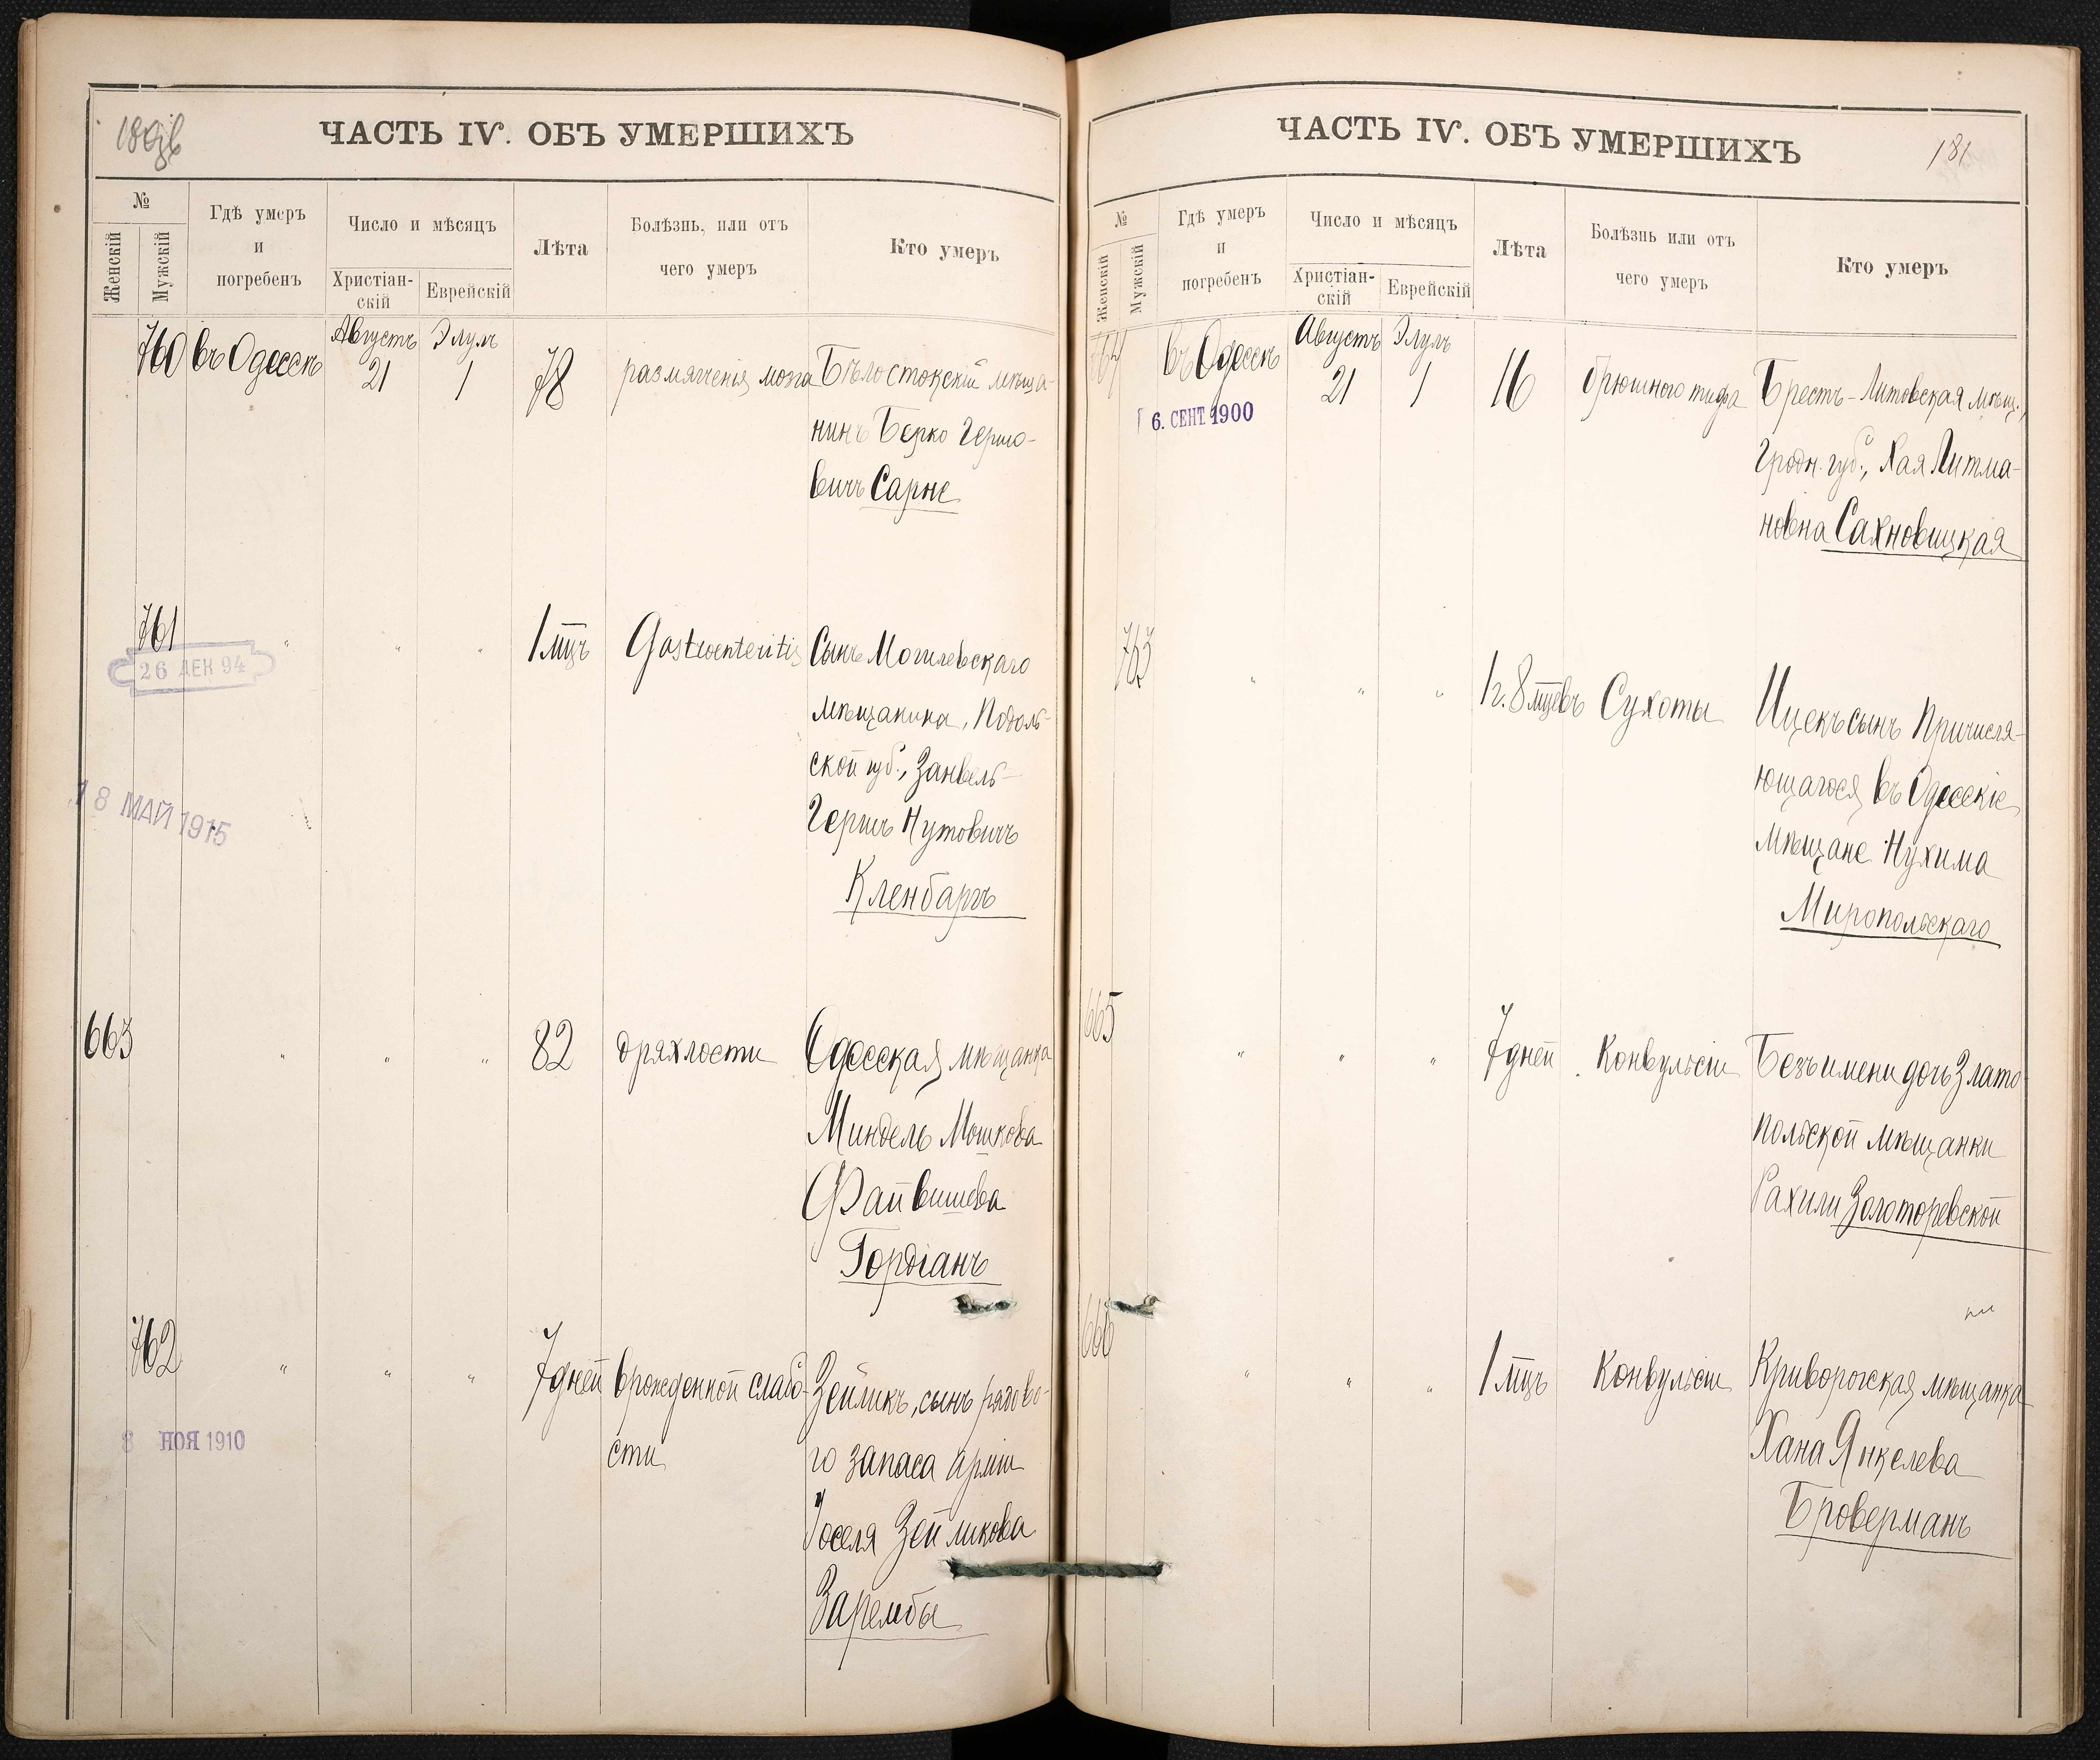 ЧАСТЬ IV. ОБЪ УМЕРШИХЪ
№
Женскій
Мужскій
Гдѣ умеръ
и
погребенъ
Число и мѣсяцъ
Христіан-
скій
Еврейскій
Лѣта
Болѣзнь, или отъ
чего умеръ
Кто умеръ
760 въ Одессѣ Августъ 21 Элулъ 1 78 размягченія мозга Бѣлостокскій мѣща-
нинъ Берко Гершо-
вичъ Сарне
761 " " " 1 мцъ Gastroenteritis Сынъ Могилевскаго
26 ДЕК 94
мѣщанина, Подоль-
ской губ., Занвель-
18 МАЙ 1915
Гершъ Нутовичъ
Кленбаргъ
663 " " " 82 дряхлости Одесская мѣщанка
Миндель Мошкова
Файвишева
Гордіанъ
762 " " " 7 дней врожденной слабо- Зейликъ, сынъ рядово-
8 НОЯ 1910
сти го запаса арміи
Іоселя Зейликова
Зарембы
ЧАСТЬ IV. ОБЪ УМЕРШИХЪ
181
№
Женскій
Мужскій
Гдѣ умеръ
и
погребенъ
Число и мѣсяцъ
Христіан-
скій
Еврейскій
Лѣта
Болѣзнь или отъ
чего умеръ
Кто умеръ
664 въ Одессѣ Августъ 21 Элулъ 1 16 брюшного тифа Брестъ-Литовская мѣщ.,
6. СЕНТ 1900
Гродн. губ., Хая Литма-
новна Сахновицкая
763 " " " 1 г. 8 мцевъ Сухоты Ицекъ сынъ Причисля-
ющагося въ Одесскіе
мѣщане Нухима
Миропольскаго
665 " " " 7 дней Конвульсіи Безъ имени дочь Злато-
польской мѣщанки
Рахили Золоторевской
666 " " " 1 мцъ Конвульсіи Криворогская мѣщанка
Хана Янкелева
Броверманъ